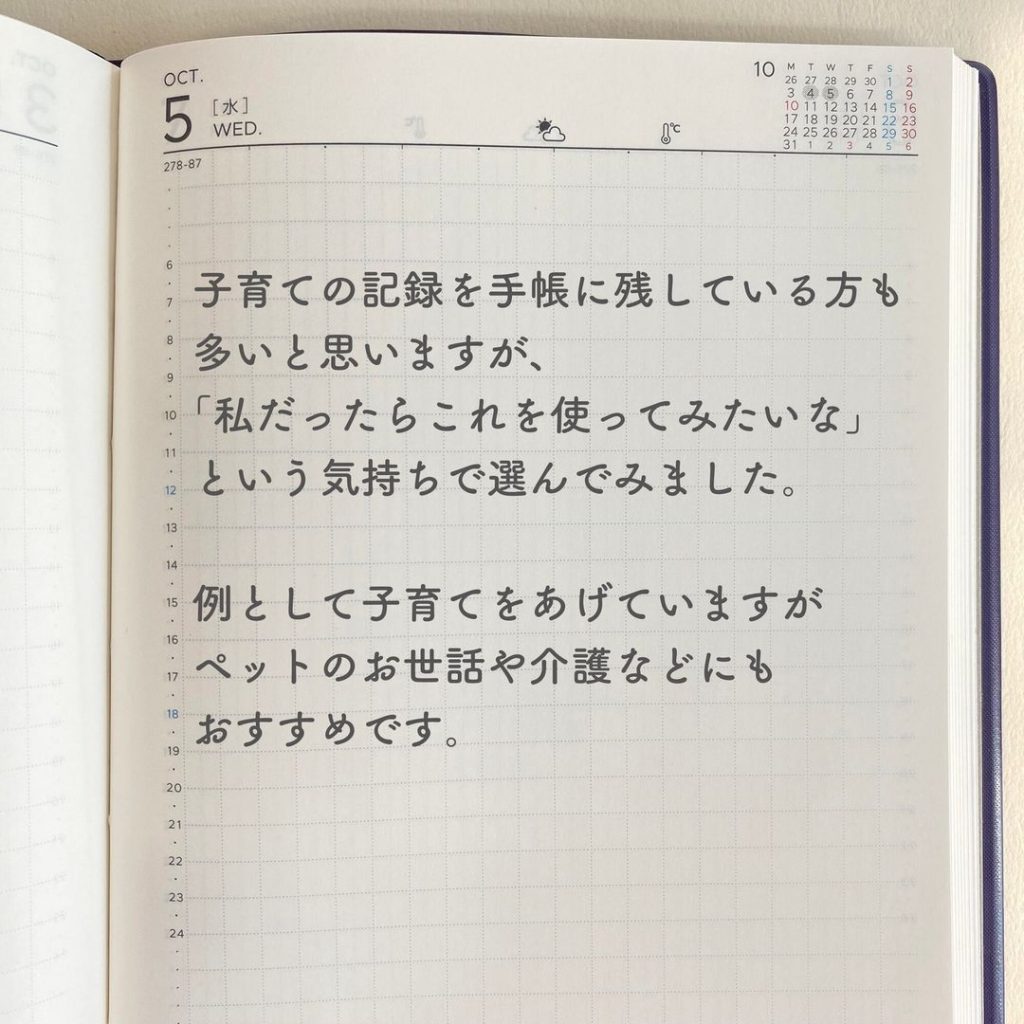 OCT.
5 [水] WED.
278-87
10
M T W T F S S
26 27 28 29 30 1 2
3 4 5 6 7 8 9
10 11 12 13 14 15 16
17 18 19 20 21 22 23
24 25 26 27 28 29 30
31 1 2 3 4 5 6
℃
6
子育ての記録を手帳に残している方も
7
8
多いと思いますが、
9
10
「私だったらこれを使ってみたいな」
11
12
という気持ちで選んでみました。
13
14
15
例として子育てをあげていますが
16
17
ペットのお世話や介護などにも
18
おすすめです。
19
20
21
22
23
24